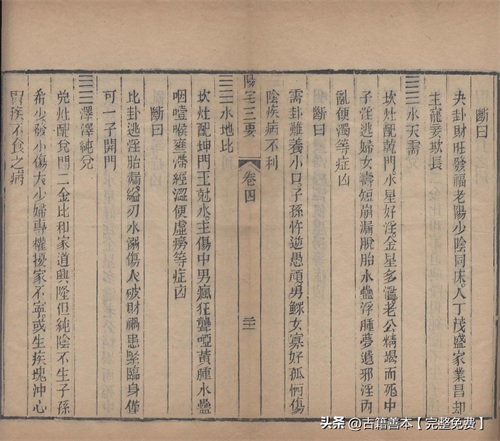 夬卦財旺發福老陽少陰同床人丁茂盛家業昌却
生寵妾欺長
䷄水天需
坎灶配乾門水星好淫金星多濫老公精竭而死中
子淫逃婦女壽短崩漏脫胎水蠱浮腫夢遺邪淫內
亂便濁等症凶
斷曰
需卦難養小口子孫忤逆愚頑男鰥女寡好孤恓傷
陰疾病不利
陽宅三要 卷四
䷇水地比
坎灶配坤門土剋水主傷中男瘋狂聾啞黃腫水蠱
咽噎喉癰滯經溫便虛癆等症凶
斷曰
比卦逃淫胎漏縊刃水溺傷人破財禍患緊臨身僅
可一子開門
䷹澤澤純兌
兌灶配兌門二金比和家道興隆但純陰不生子孫
希少發小傷大少婦專權擾家不寧或生疾塊沖心
胃疾不食之病
头条 @古籍善本【完整免费】